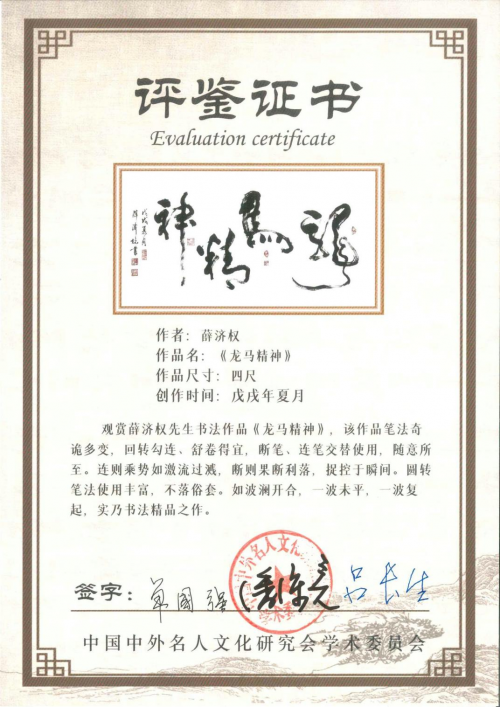 评鉴证书
Evaluation certificate
龍馬精神
戊戌夏月
作者：薛济权
作品名：《龙马精神》
作品尺寸：四尺
创作时间：戊戌年夏月
观赏薛济权先生书法作品《龙马精神》，该作品笔法奇
诡多变，回转勾连、舒卷得宜，断笔、连笔交替使用，随意所
至。连则乘势如激流过溅，断则果断利落，捉控于瞬间。圆转
笔法使用丰富，不落俗套。如波澜开合，一波未平，一波复
起，实乃书法精品之作。
中外名人文化
签字：单国强 吕长生
中国中外名人文化研究会学术委员会